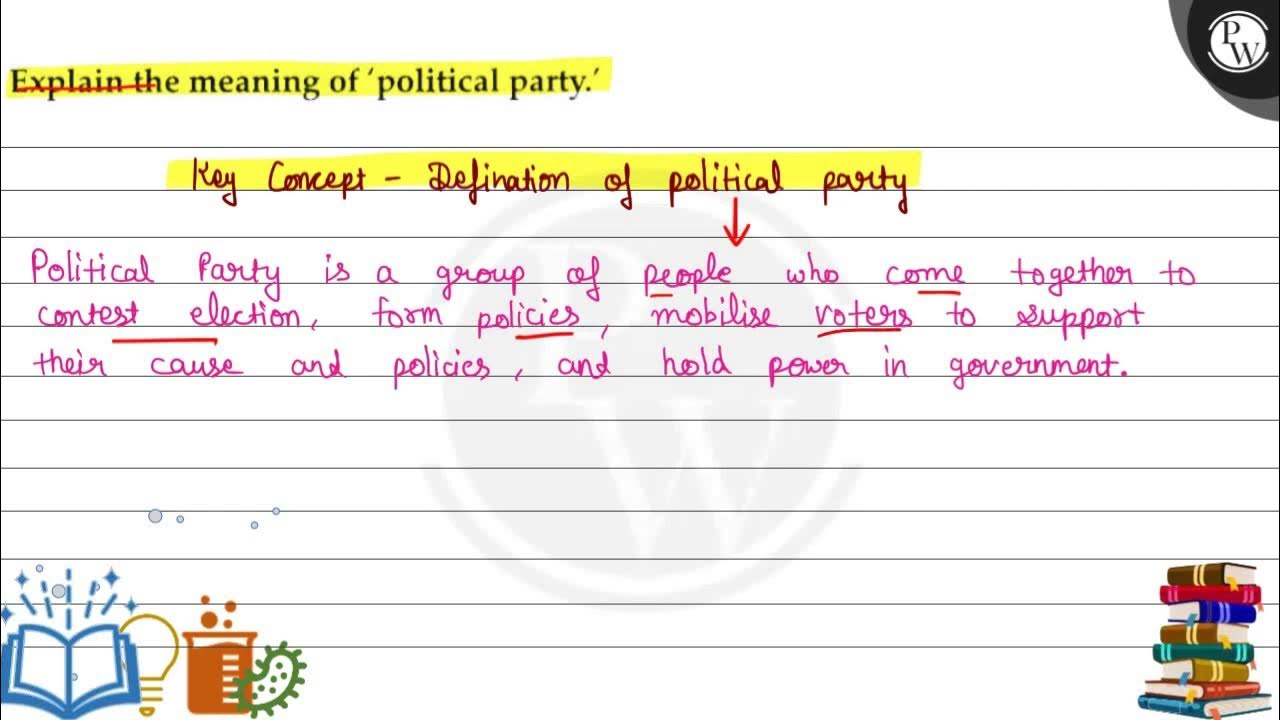 Explain the meaning of ‘political party.’
PW
Key Concept - Defination of political party
Political Party is a group of people who come together to
contest election, form policies, mobilise voters to support
their cause and policies, and hold power in government.
PW